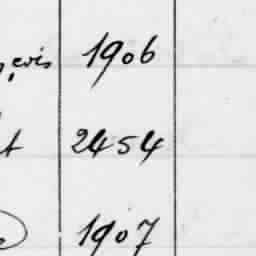 çois 1906
t 2454
1907